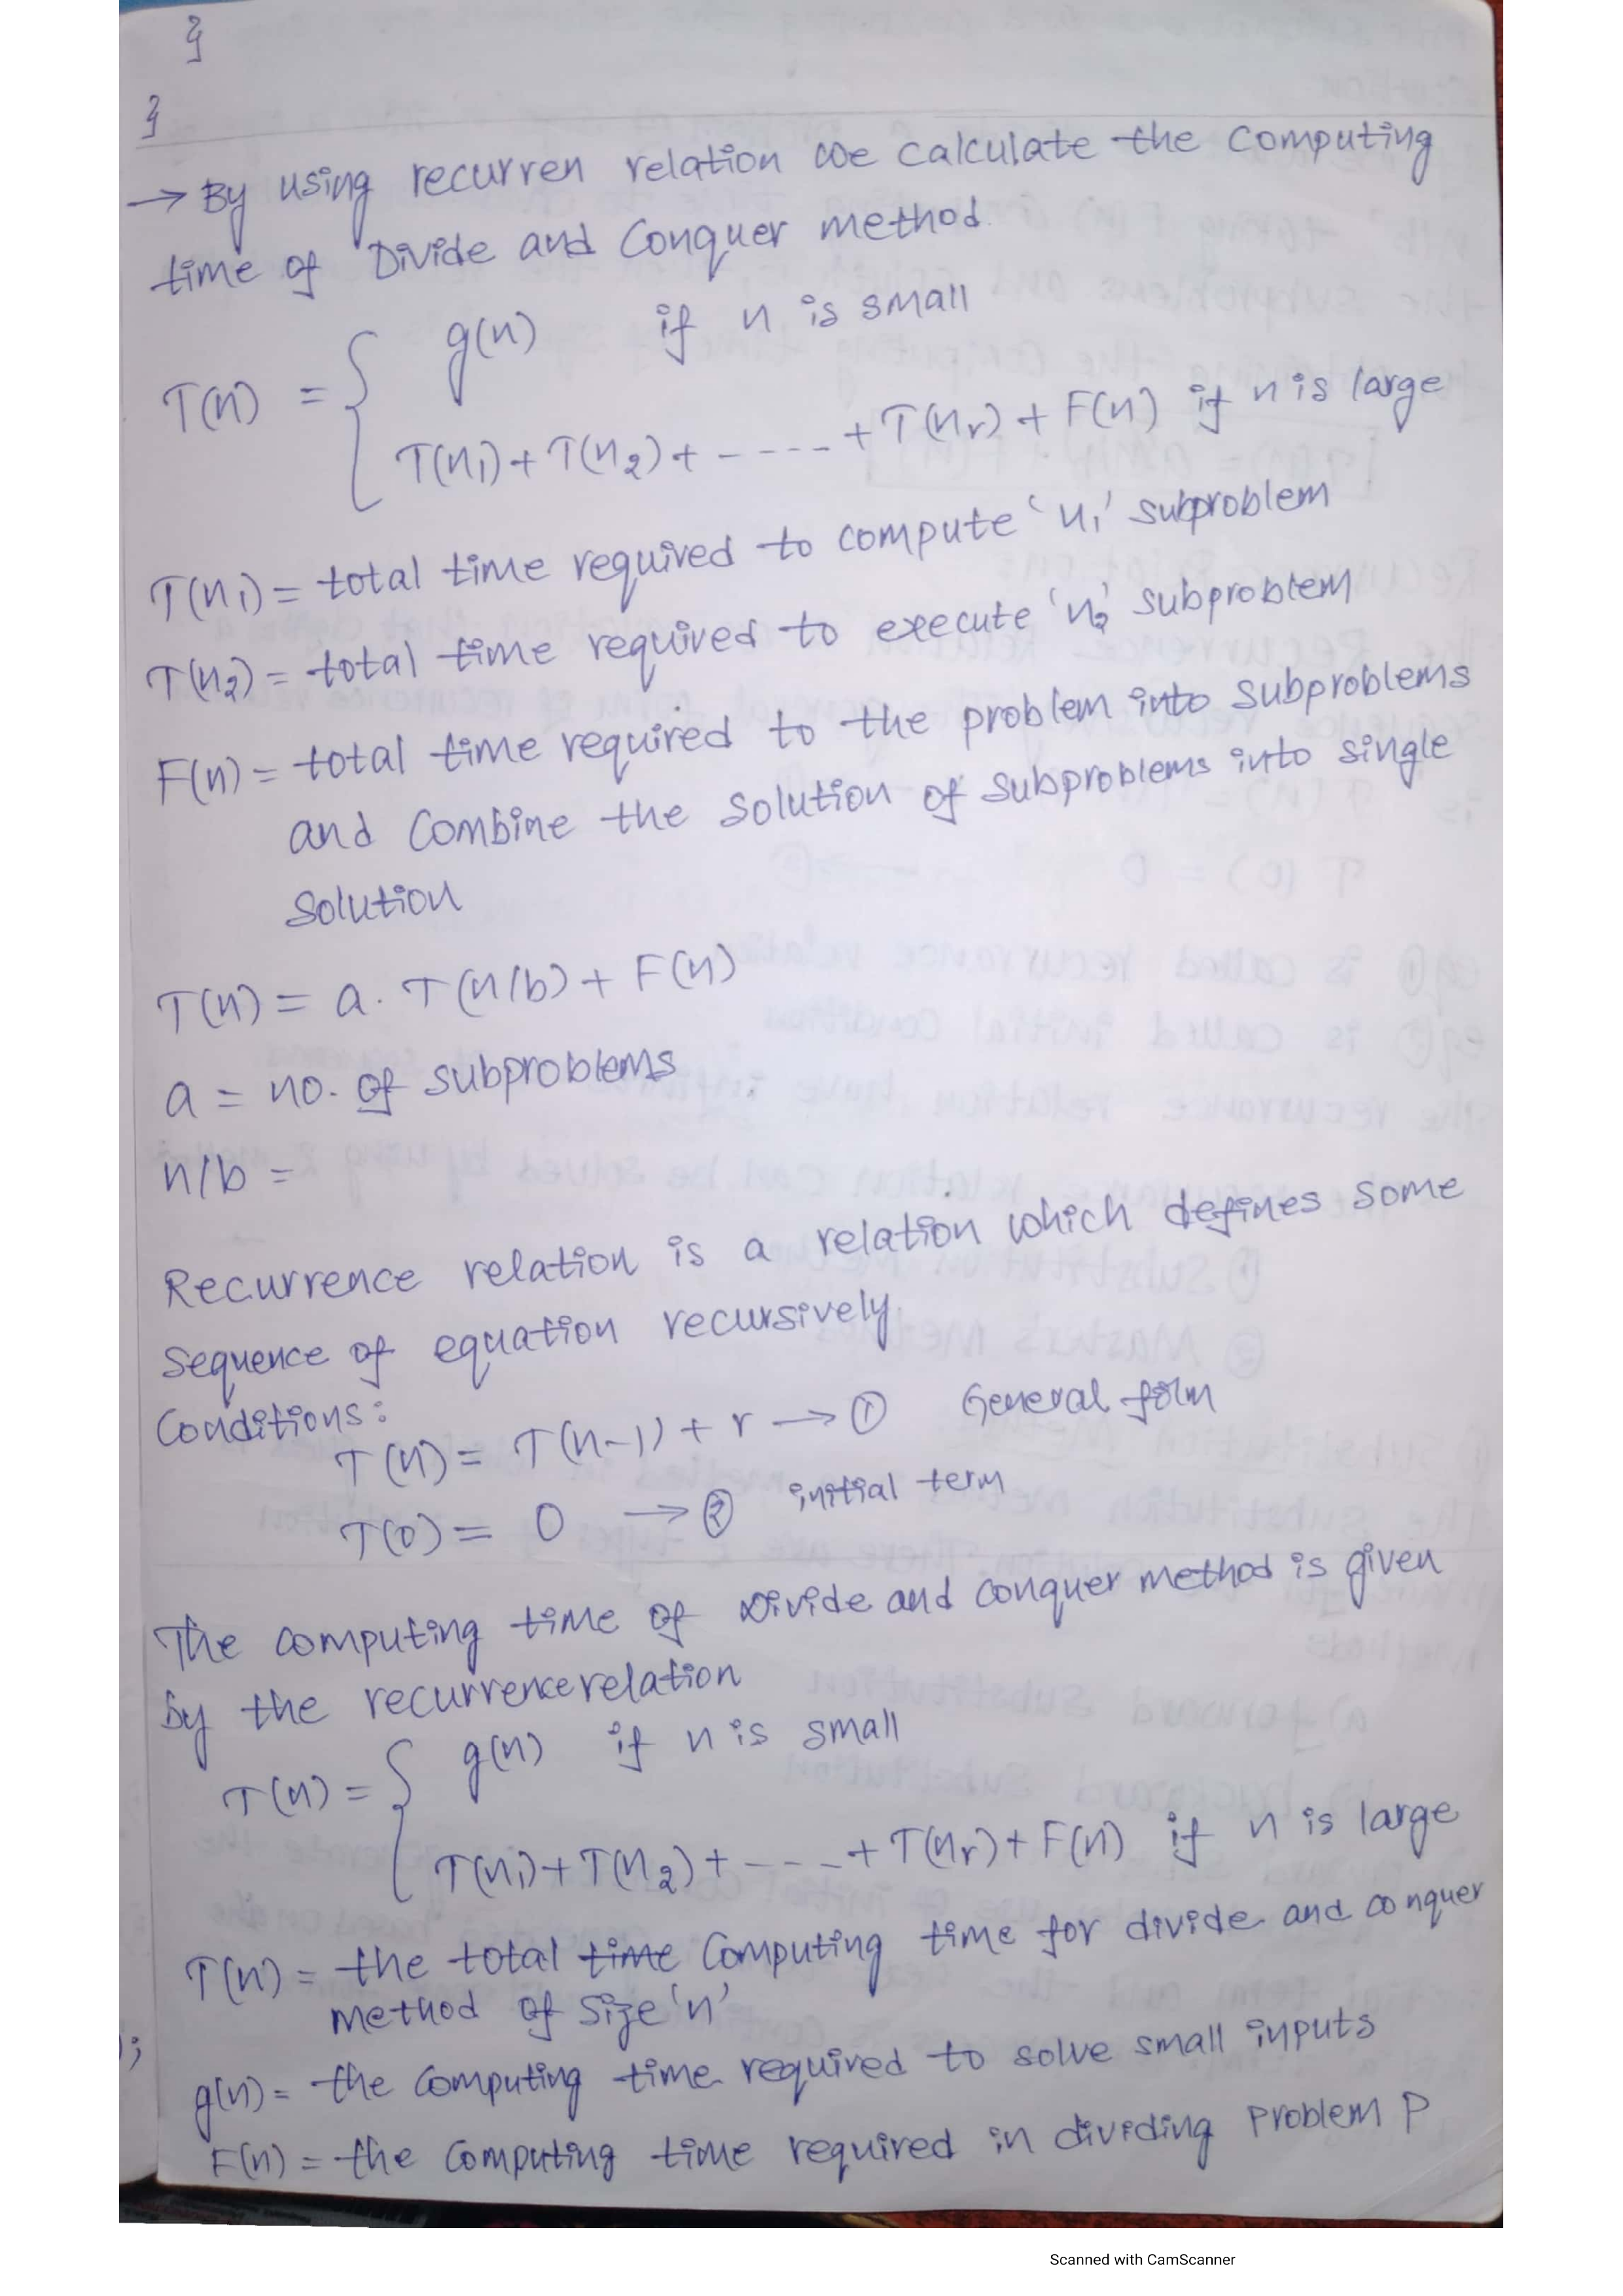 }
}
→ By using recurren relation we calculate the computing
time of Divide and Conquer method.
g(n) if n is small
T(n) = {
T(n₁) + T(n₂) + ----- + T(nᵣ) + F(n) if n is large
T(n₁) = total time required to compute 'n₁' subproblem
T(n₂) = total time required to execute 'n₂' subproblem
F(n) = total time required to the problem into subproblems
and combine the solution of subproblems into single
solution
T(n) = a. T(n/b) + F(n)
a = no. of subproblems
n/b =
Recurrence relation is a relation which defines some
sequence of equation recursively.
Conditions:
T(n) = T(n-1) + r → ① General form
T(0) = 0 → ② initial term
The computing time of Divide and conquer method is given
by the recurrence relation
g(n) if n is small
T(n) = {
T(n₁) + T(n₂) + ---- + T(nᵣ) + F(n) if n is large
T(n) = the total time computing time for divide and conquer
method of size 'n'
g(n) = the computing time required to solve small inputs
F(n) = the computing time required in dividing problem P
);
Scanned with CamScanner